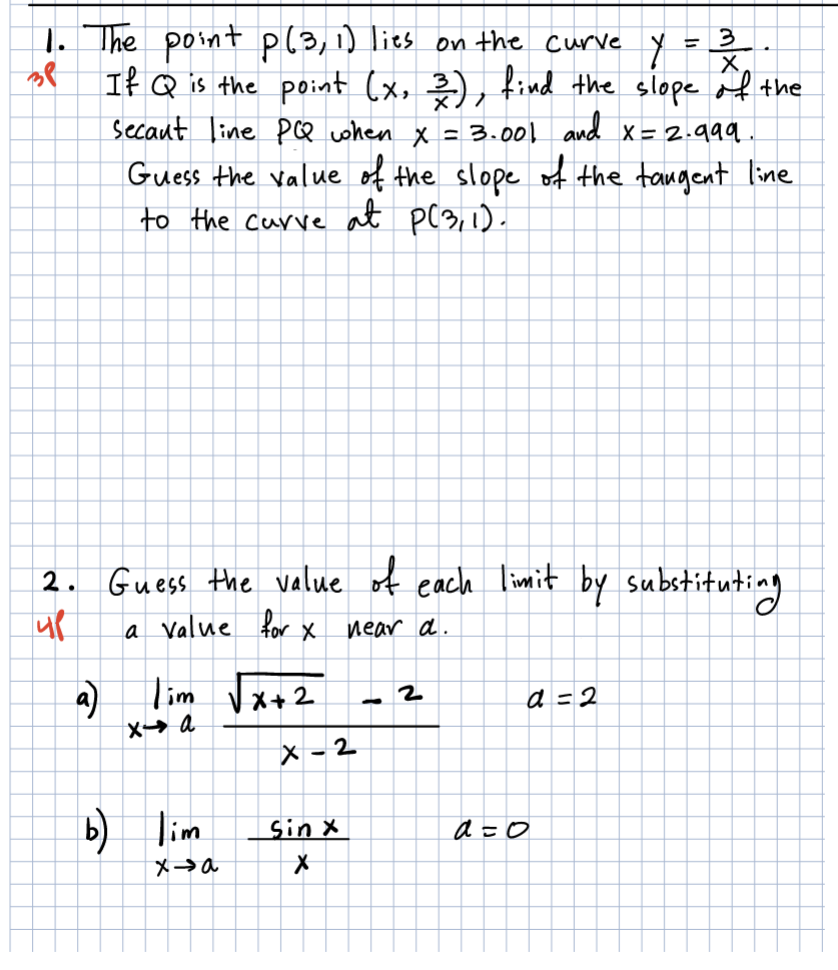 1. The point P(3,1) lies on the curve y = 3/x.
3P If Q is the point (x, 3/x), find the slope of the
secant line PQ when x = 3.001 and x = 2.999.
Guess the value of the slope of the tangent line
to the curve at P(3,1).
2. Guess the value of each limit by substituting
4P a value for x near a.
a) lim x→a (√(x+2) - 2)/(x-2) a = 2
b) lim x→a sin x/x a = 0